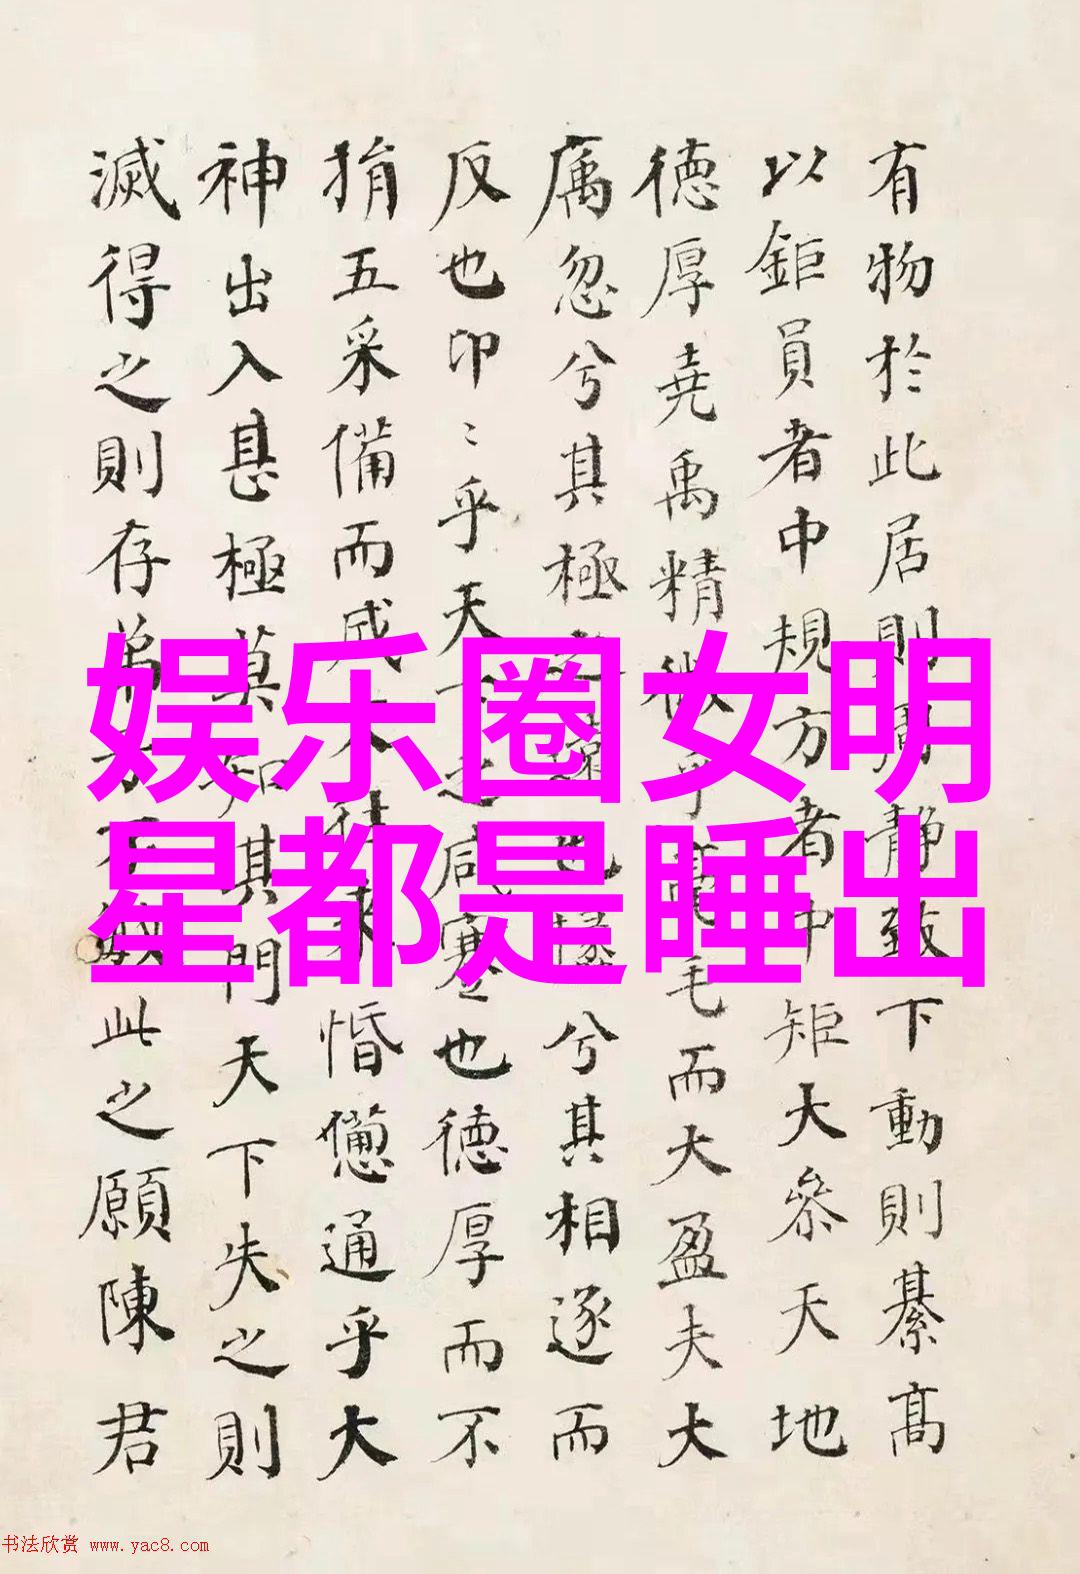 有物於此居則周靜致下動則綦髙
以鉅員者中規方者中矩大參天地
德厚堯禹精微乎毫毛而大盈夫大
厲忽兮其極之遠也㒩兮其相逐而
反也卬〻乎天下之咸蹇也德厚而不
捐五采備而成不往來惛憊通乎大
神出入甚極莫知其門天下失之則
滅得之則存弟子不敏此之願陳君
娱乐圈女明
星都是睡出
书法欣赏 www.yac8.com